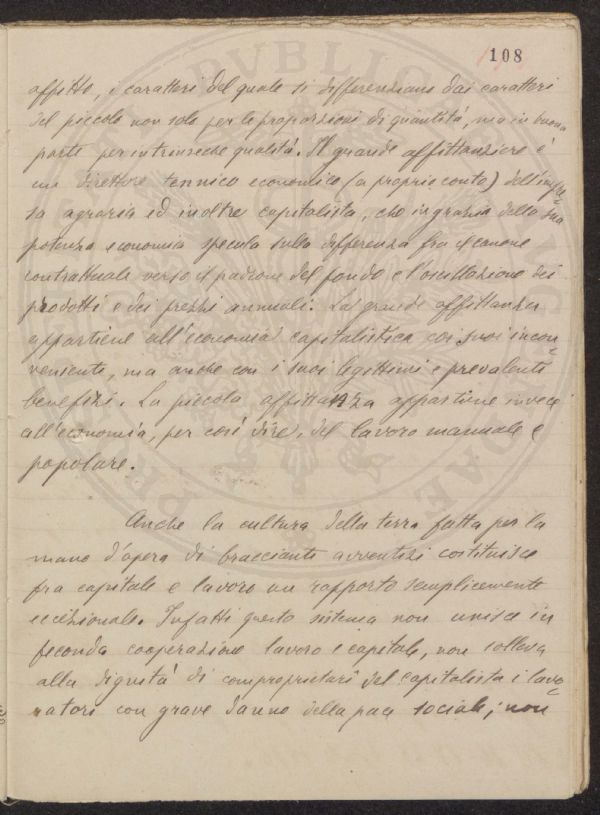 108
affitto, i caratteri del quale si differenziano dai caratteri
del piccolo non solo per le proporzioni di quantità, ma in buona
parte per intrinseche qualità. Il grande affittanziere è
un direttore tecnico economico (a proprio conto) dell'impre=
sa agraria ed inoltre capitalista, che in grazia della sua
potenza economia specula sulla differenza fra il canone
contrattuale verso il padrone del fondo e l'oscillazione dei
prodotti e dei prezzi annuali. La grande affittanza
appartiene all'economia capitalistica coi suoi incon=
venienti, ma anche con i suoi legittimi e prevalenti
benefizi. La piccola affittanza appartiene invece
all'economia, per così dire, del lavoro manuale e
popolare.
Anche la cultura della terra fatta per la
mano d'opera di braccianti avventizi costituisce
fra capitale e lavoro un rapporto semplicemente
eccezionale. Infatti questo sistema non unisce in
feconda cooperazione lavoro e capitale, non solleva
alla dignità di comproprietari del capitalista i lavo=
ratori con grave danno della pace sociale; non